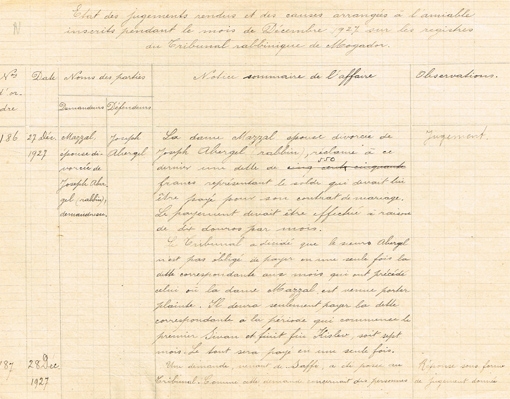 Etat des jugements rendus et des causes arrangés à l'amiable
inscrits pendant le mois de Décembre 1927 sur les registres
du Tribunal rabbinique de Mogador.
N
Nos d'or dre
Date
Noms des parties
Notice sommaire de l'affaire
Observations.
Demandeurs
Défendeurs
186
27 Déc. 1927
Mazzal, épouse divorcée de Joseph Abergel, rabbin, demanderesse
Joseph Abergel
La dame Mazzal épouse divorcée de
Joseph Abergel rabbin, réclame à ce
dernier une dette de cinq cents cinquante 550
francs représentant le solde qui devait lui
être payé pour son contrat de mariage.
Le payement devait être effectué à raison
de dix douros par mois.
Le Tribunal a décidé que le sieur Abergel
n'est pas obligé de payer en une seule fois la
dette correspondante aux mois qui ont précédé
celui où la dame Mazzal est venue porter
plainte. Il devra seulement payer la dette
correspondante à la période qui commence le
premier Sivan et finit fin Kislew, soit sept
mois. Le tout sera payé en une seule fois.
Jugement.
187
28 Déc 1927
Une demande, venant de Saffi, a été posée au
Tribunal. Comme elle concernant des personnes
Réponse sous forme
de jugement donnée